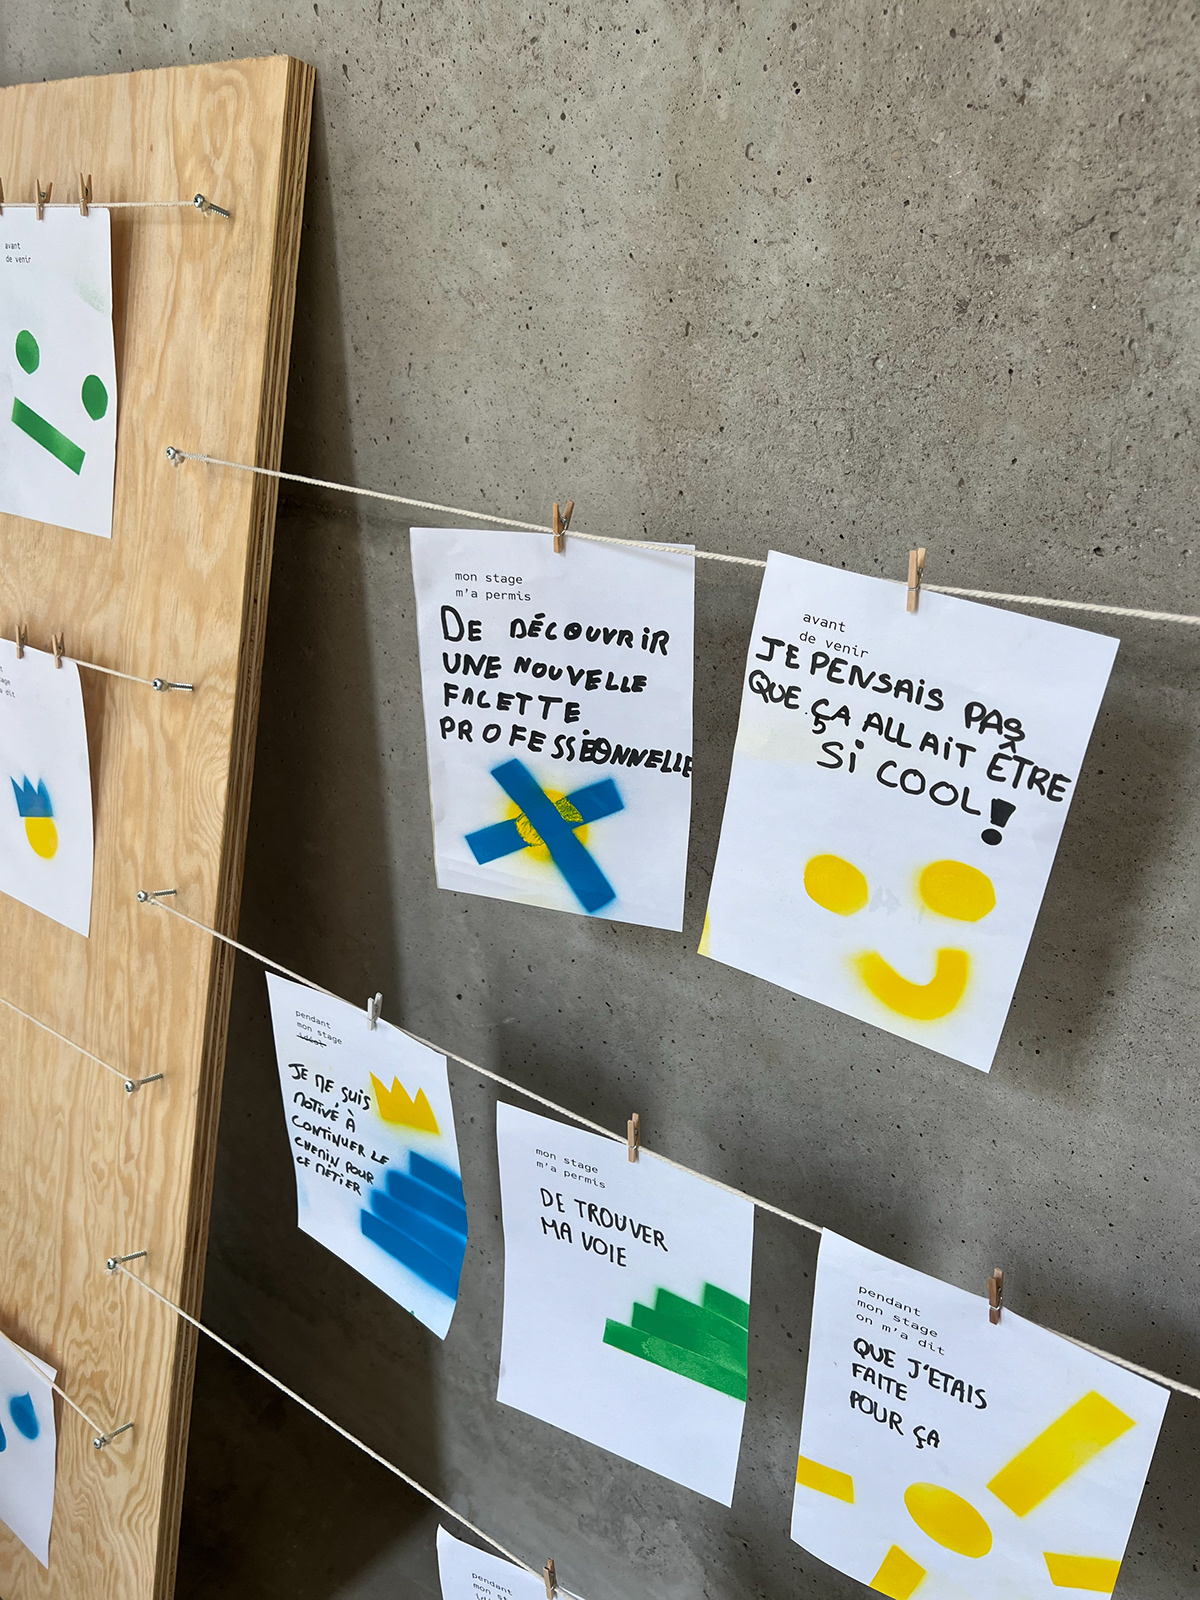 avant
de venir
mon stage
m'a permis
DE DÉCOUVRIR
UNE NOUVELLE
FACETTE
PROFESSIONNELLE
avant
de venir
JE PENSAIS PAS
QUE ÇA ALLAIT ÊTRE
Si COOL!
a dit
pendant
mon stage
idéal
JE ME SUIS
MOTIVÉ À
CONTINUER LE
CHEMIN POUR
CE MÉTIER
mon stage
m'a permis
DE TROUVER
MA VOIE
pendant
mon stage
on m'a dit
QUE J'ETAIS
FAITE
POUR ÇA
pendant
mon st